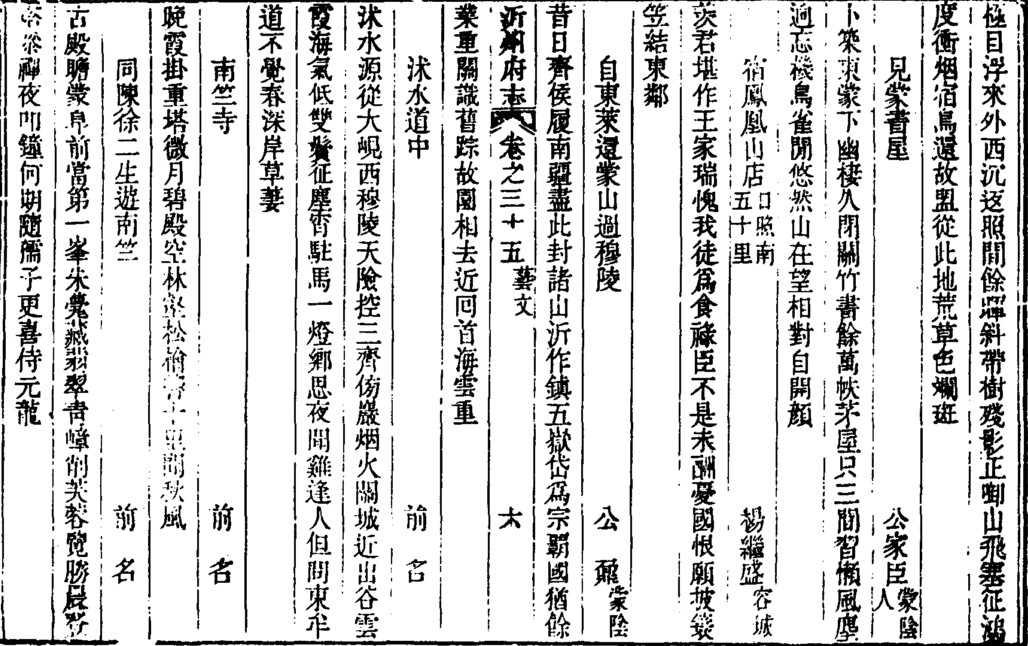 極目浮來外西沉返照間餘暉斜帶樹殘影正啣山飛塞征鴻
度衝烟宿鳥還故盟從此地荒草色斕斑
兄蒙書屋 公家臣蒙陰人
卜築東蒙下幽棲久閉關竹書餘萬帙茅屋只三間習懶風塵
逈忘機鳥雀閒悠然山在望相對自開顏
宿鳳凰山店日照南五十里 楊繼盛容城
羨君堪作王家瑞愧我徒爲食祿臣不是未酬憂國恨願披簑
笠結東鄰
自東萊還蒙山過穆陵 公鼐蒙陰
昔日齊侯履南疆盡此封諸山沂作鎮五嶽岱爲宗霸國猶餘
沂州府志 卷之三十五 藝文
業重關識舊踪故園相去近回首海雲重
沭水道中 前名
沭水源從大峴西穆陵天險控三齊傍巖烟火關城近出谷雲
霞海氣低雙鬢征塵宵駐馬一燈鄉思夜聞雞逢人但問東牟
道不覺春深岸草萋
南竺寺 前名
晚霞掛重塔微月碧殿空林壑松檜 十里聞秋風
同陳徐二生遊南竺 前名
古殿瞻蒙阜前當第一峯朱甍藏翡翠青嶂削芙蓉覽勝晨
禪夜叩鐘何期隨孺子更喜侍元龍